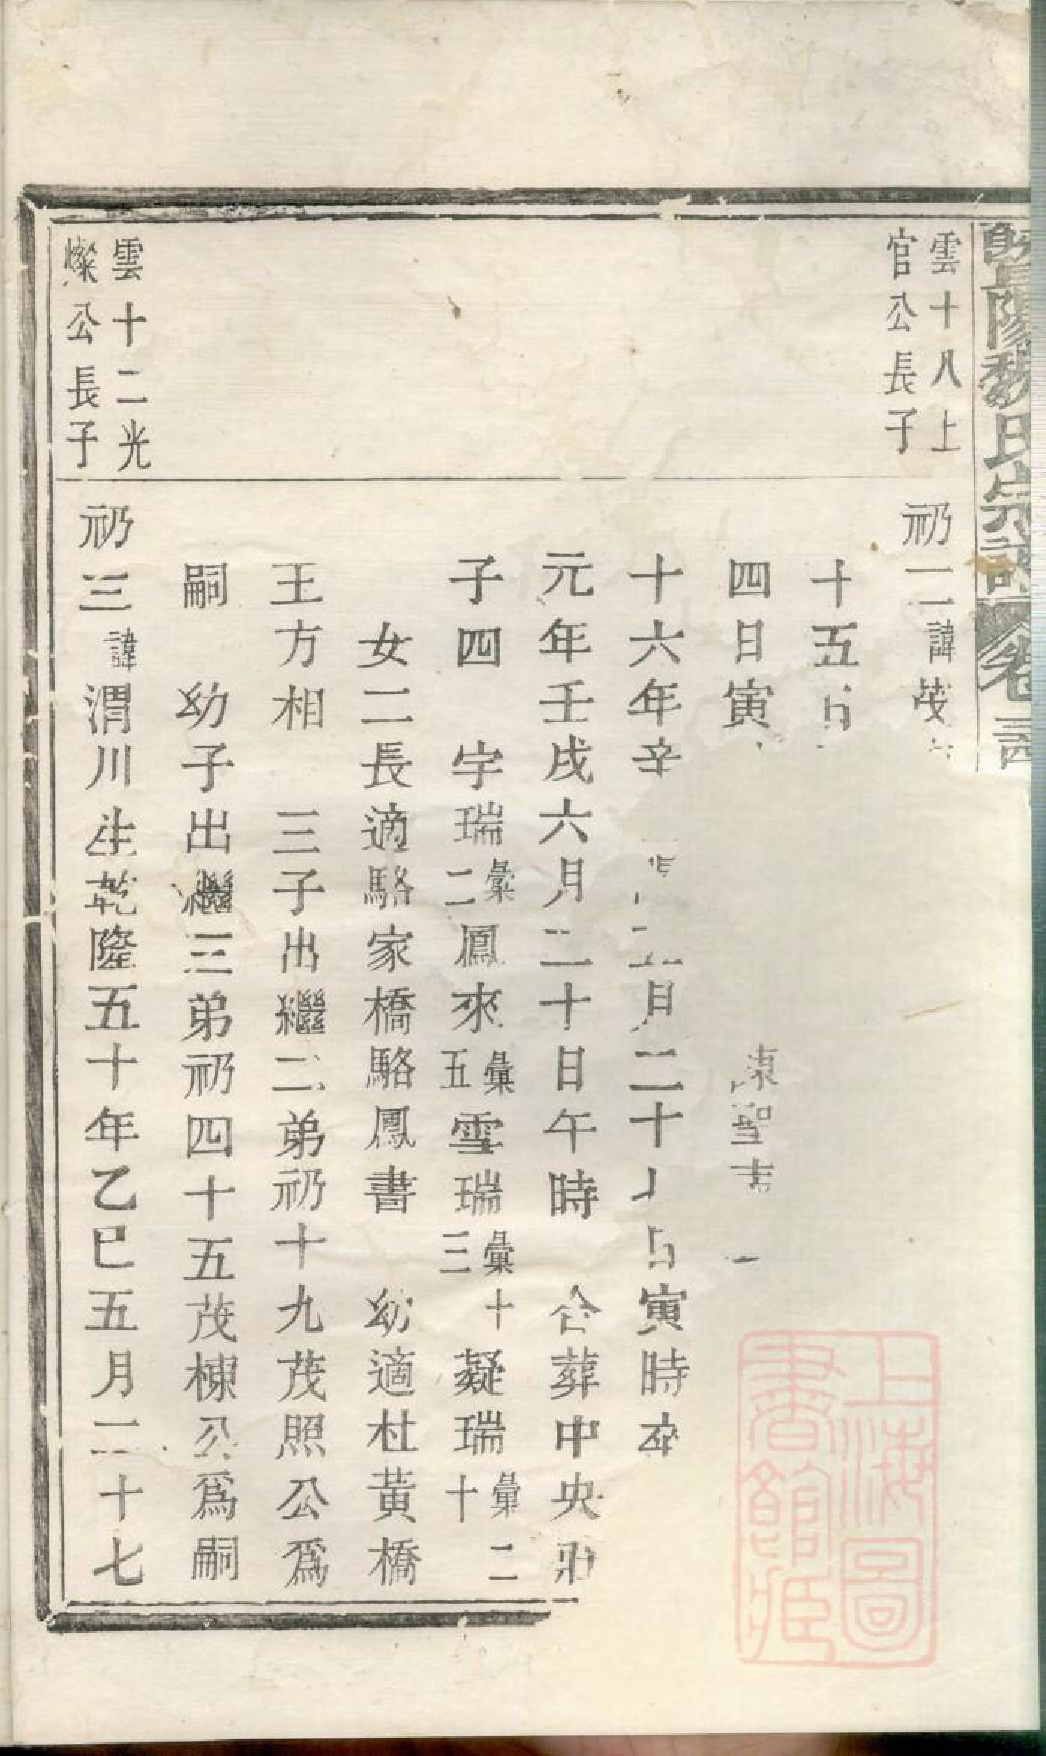 暨陽魏氏宗譜 卷三
雲十八上
官公長子
礽二諱茂
十五
四日寅 陳聖
十六年辛 月二十 寅時卒
元年壬戌六月二十日午時 合葬中央
子四 字瑞彙二鳳來彙五雪瑞彙十三凝瑞彙二十
女二長適駱家橋駱鳳書 幼適杜黃橋
王方相 三子出繼二弟礽十九茂照公爲
嗣 幼子出繼三弟礽四十五茂棟公爲嗣
雲十二光
燦公長子
礽三諱渭川生乾隆五十年乙巳五月二十七
上海圖
書館藏